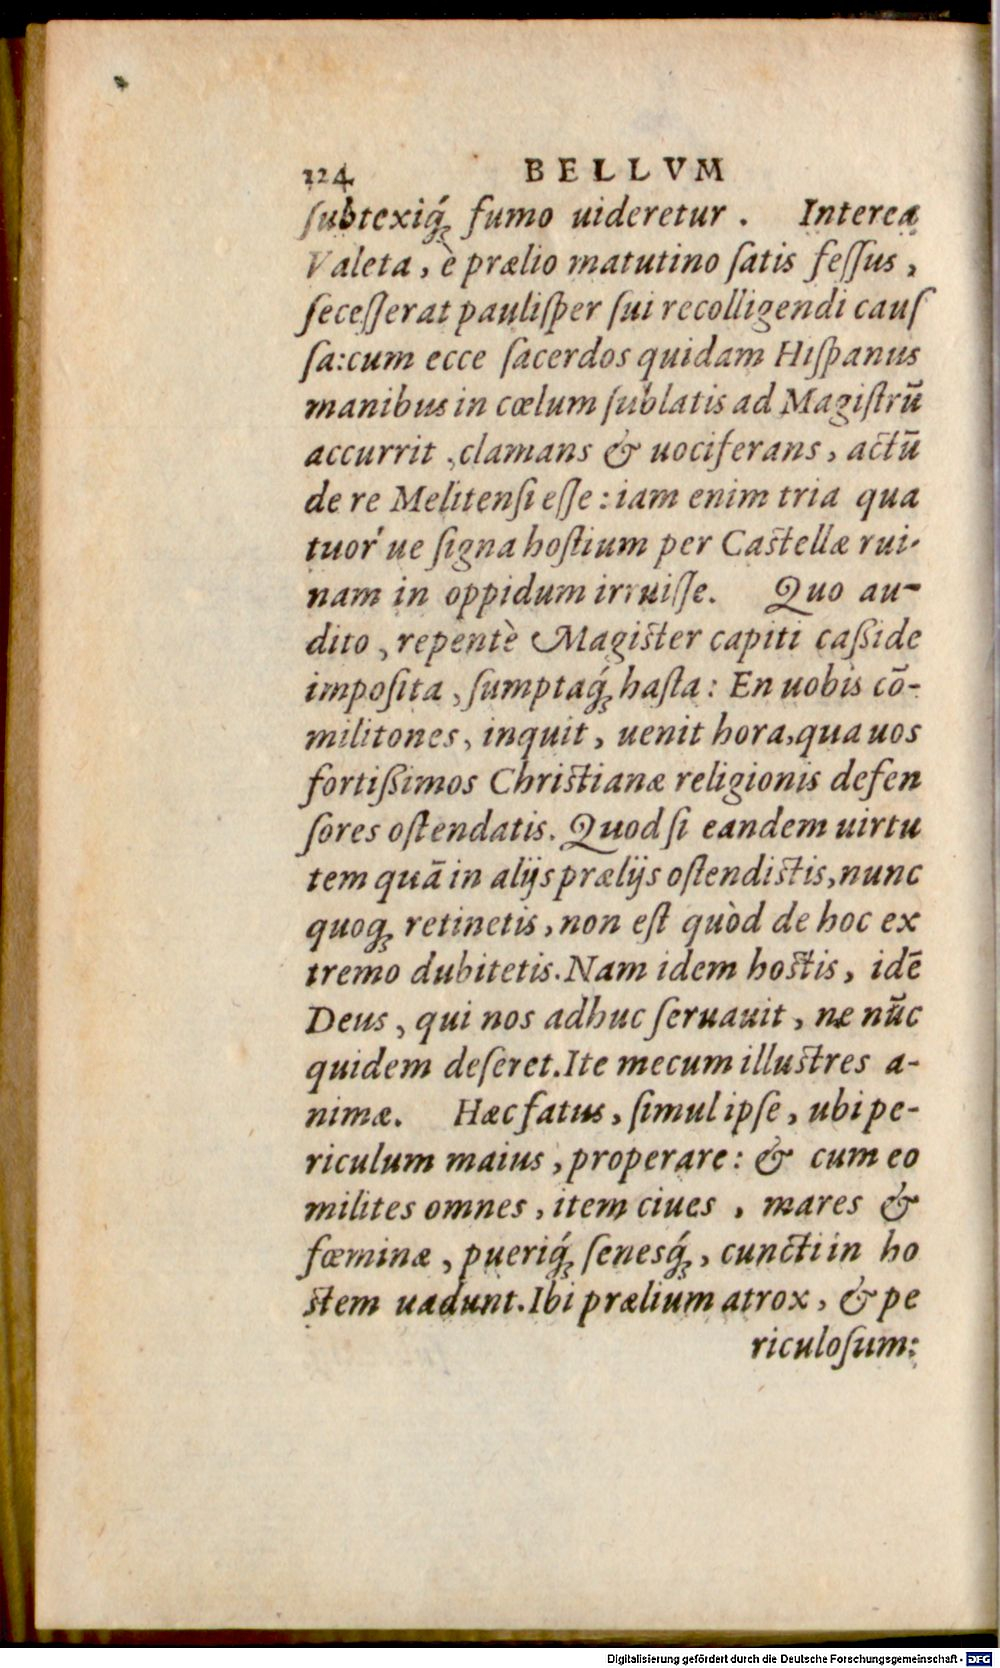 124 BELLVM
ſubtexiq́ꝫ fumo uideretur. Interea
Valeta, è prælio matutino ſatis feſſus,
ſeceſſerat pauliſper ſui recolligendi cauſ
ſa:cum ecce ſacerdos quidam Hiſpanus
manibus in cœlum ſublatis ad Magiſtrū
accurrit, clamans & uociferans, actū
de re Melitenſi eſſe: iam enim tria qua
tuor'ue ſigna hoſtium per Caſtellæ rui-
nam in oppidum irruiſſe. Quo au-
dito, repentè Magiſter capiti caßide
impoſita, ſumptaq́ꝫ haſta: En uobis cō-
militones, inquit, uenit hora, qua uos
fortißimos Chriſtianæ religionis defen
ſores oſtendatis. Quod ſi eandem uirtu
tem quā in alijs prælijs oſtendiſtis, nunc
quoqꝫ retinetis, non eſt quòd de hoc ex
tremo dubitetis. Nam idem hoſtis, idē
Deus, qui nos adhuc ſeruauit, ne nūc
quidem deſeret. Ite mecum illuſtres a-
nimæ. Hæc fatus, ſimul ipſe, ubi pe-
riculum maius, properare: & cum eo
milites omnes, item ciues, mares &
fœminæ, pueriq́ꝫ ſenesq́ꝫ, cuncti in ho
ſtem uadunt. Ibi prælium atrox, & pe
riculoſum:
Digitalisierung gefördert durch die Deutsche Forschungsgemeinschaft - DFG